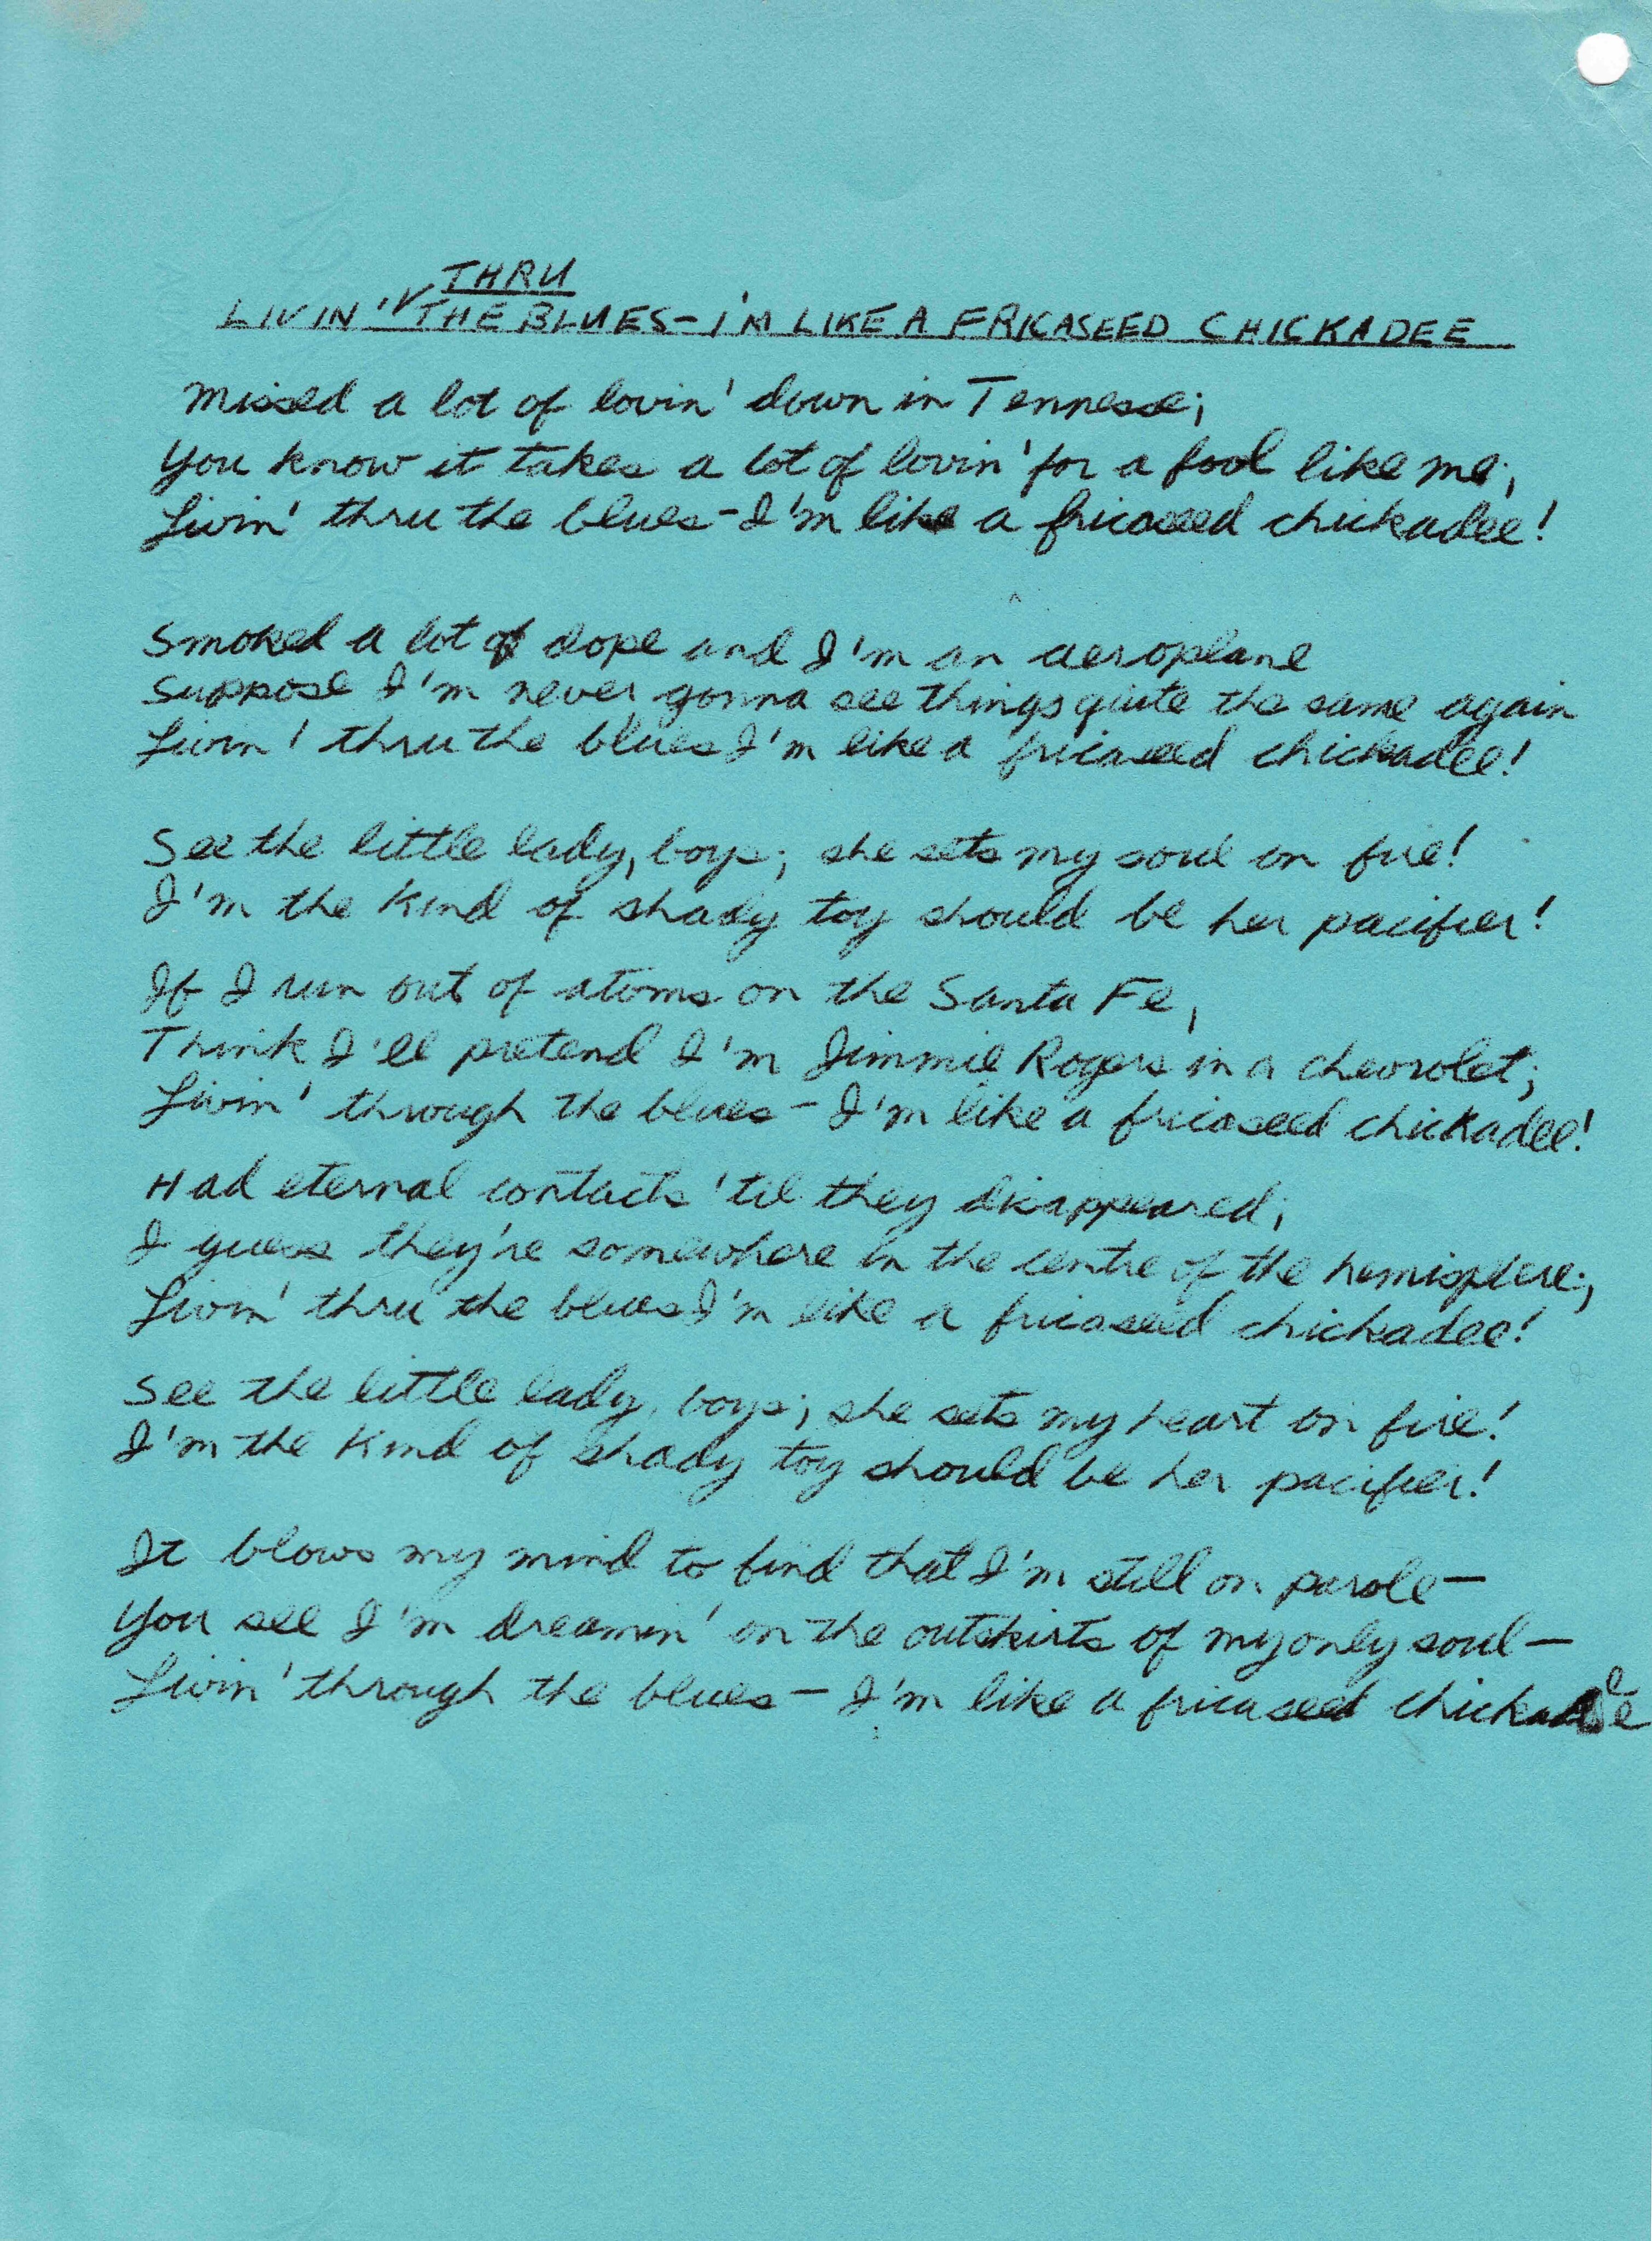 LIVIN' THRU THE BLUES - I'M LIKE A FRICASEED CHICKADEE
Missed a lot of lovin' down in Tennesse;
You know it takes a lot of lovin' for a fool like me;
Livin' thru the blues - I'm like a fricaseed chickadee!
Smoked a lot of dope and I'm an aeroplane
Suppose I'm never gonna see things quite the same again
Livin' thru the blues I'm like a fricaseed chickadee!
See the little lady, boys; she sets my soul on fire!
I'm the kind of shady toy should be her pacifier!
If I run out of atoms on the Santa Fe,
Think I'll pretend I'm Jimmie Rogers in a chevrolet;
Livin' through the blues - I'm like a fricaseed chickadee!
Had eternal contacts 'til they disappeared;
I guess they're somewhere in the centre of the hemisphere;
Livin' thru the blues I'm like a fricaseed chickadee!
See the little lady, boys; she sets my heart on fire!
I'm the kind of shady toy should be her pacifier!
It blows my mind to find that I'm still on parole -
You see I'm dreamin' on the outskirts of my only soul -
Livin' through the blues - I'm like a fricaseed chickadee